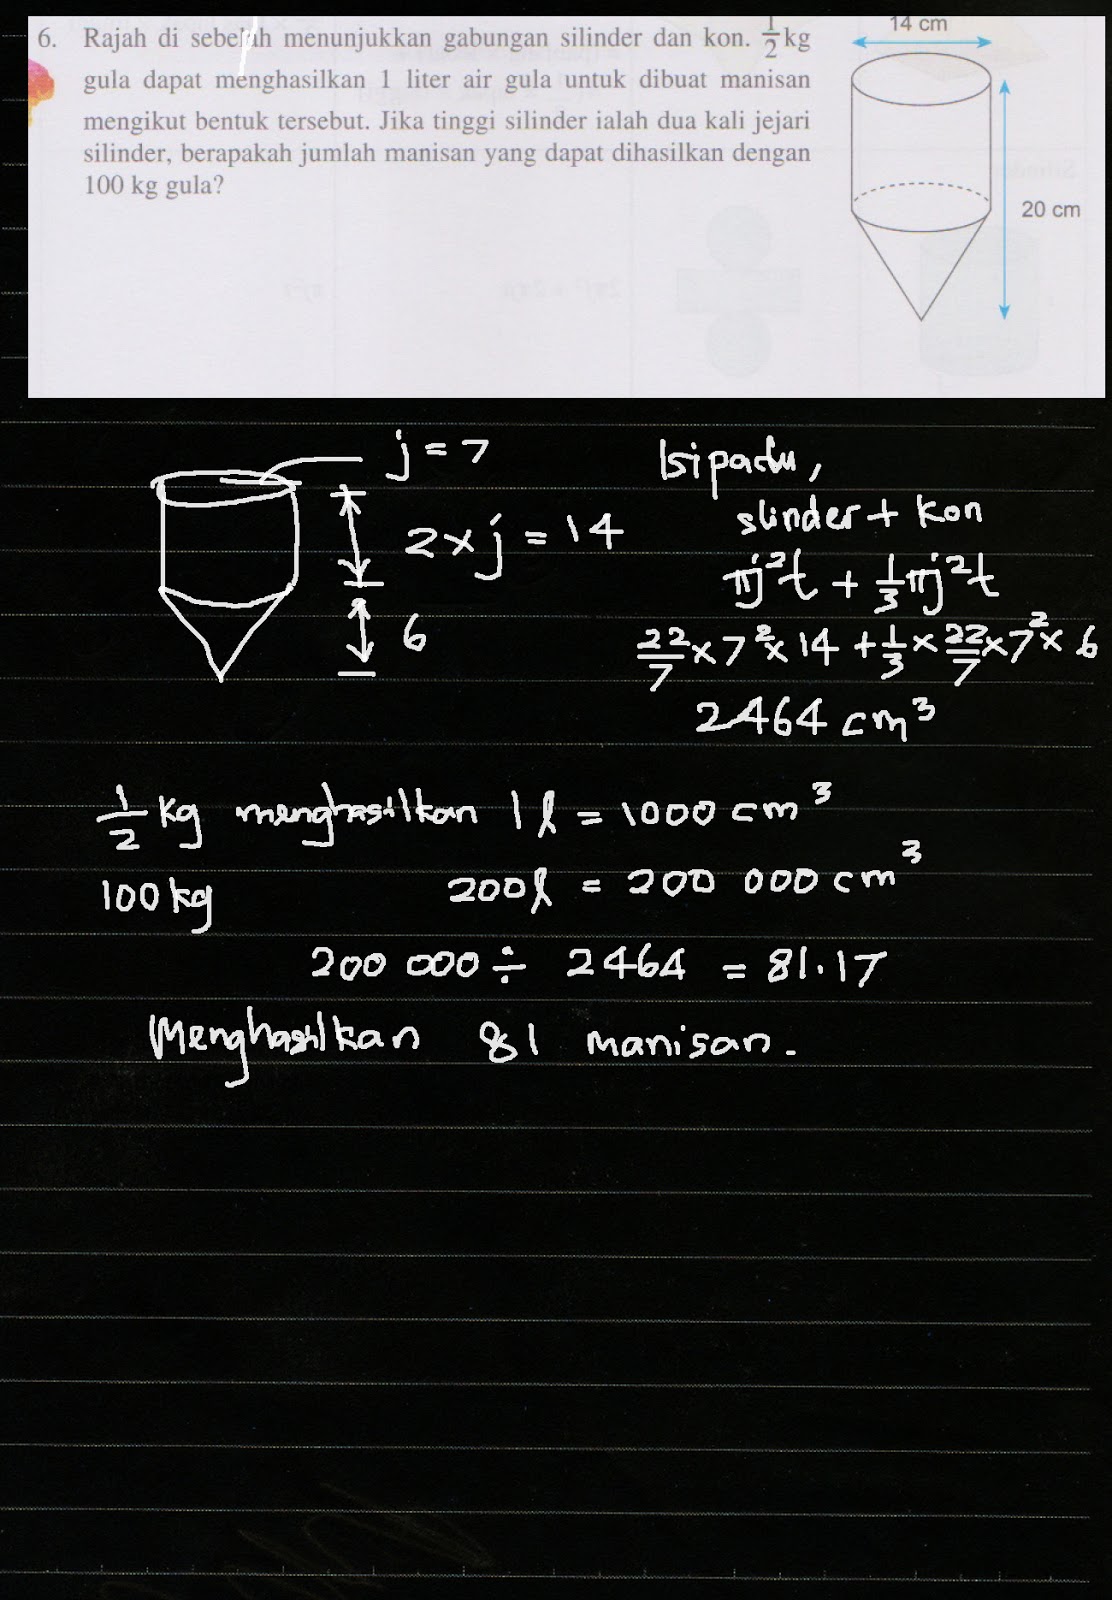 6. Rajah di sebelah menunjukkan gabungan silinder dan kon. 1/2 kg
gula dapat menghasilkan 1 liter air gula untuk dibuat manisan
mengikut bentuk tersebut. Jika tinggi silinder ialah dua kali jejari
silinder, berapakah jumlah manisan yang dapat dihasilkan dengan
100 kg gula?
14 cm
20 cm
j = 7
2 × j = 14
6
Isipadu,
slinder + kon
πj²t + 1/3 πj²t
22/7 × 7² × 14 + 1/3 × 22/7 × 7² × 6
2464 cm³
1/2 kg menghasilkan 1 l = 1000 cm³
100 kg 200 l = 200 000 cm³
200 000 ÷ 2464 = 81.17
Menghasilkan 81 manisan.